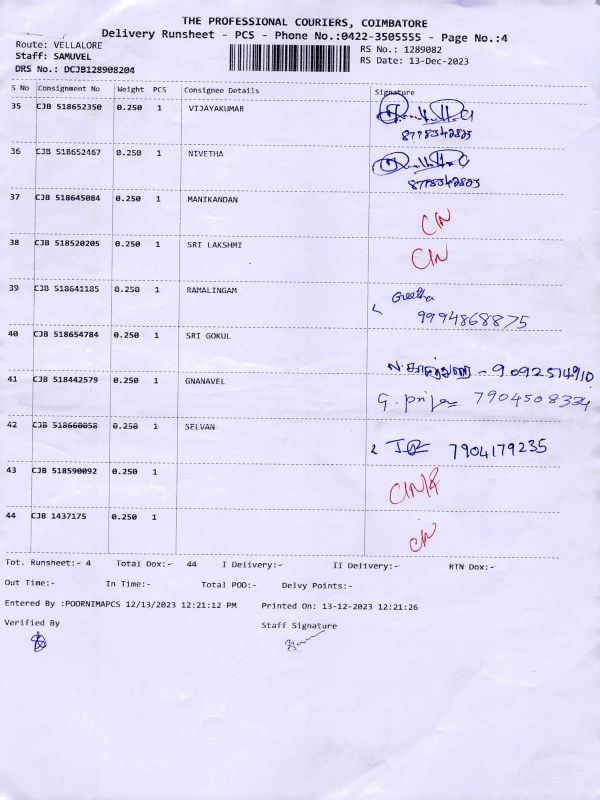 THE PROFESSIONAL COURIERS, COIMBATORE
Delivery Runsheet - PCS - Phone No.:0422-3505555 - Page No.:4
Route: VELLALORE
RS No.: 1289082
Staff: SAMUVEL
RS Date: 13-Dec-2023
DRS No.: DCJB128908204
S No Consignment No Weight PCS Consignee Details Signature
35 CJB 518652350 0.250 1 VIJAYAKUMAR
8778342823
36 CJB 518652467 0.250 1 NIVETHA
8778342823
37 CJB 518645084 0.250 1 MANIKANDAN
CIN
38 CJB 518520205 0.250 1 SRI LAKSHMI
CIN
39 CJB 518641185 0.250 1 RAMALINGAM Geetha
9994868875
40 CJB 518654784 0.250 1 SRI GOKUL
9092514910
41 CJB 518442579 0.250 1 GNANAVEL
G. priya 7904508334
42 CJB 518660058 0.250 1 SELVAN
7904179235
43 CJB 518590092 0.250 1
44 CJB 1437175 0.250 1
CIN
Tot. Runsheet:- 4 Total Dox:- 44 I Delivery:- II Delivery:- RTN Dox:-
Out Time:- In Time:- Total POD:- Delvy Points:-
Entered By :POORNIMAPCS 12/13/2023 12:21:12 PM Printed On: 13-12-2023 12:21:26
Verified By Staff Signature